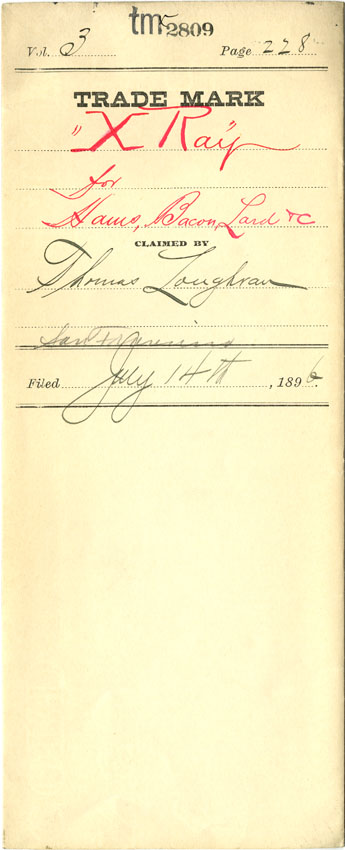 tmc 2809
Vol. 3 Page 228
TRADE MARK
"X Ray"
for
Hams, Bacon, Lard &C
CLAIMED BY
Thomas Loughran
San Francisco
Filed July 14th, 1896.